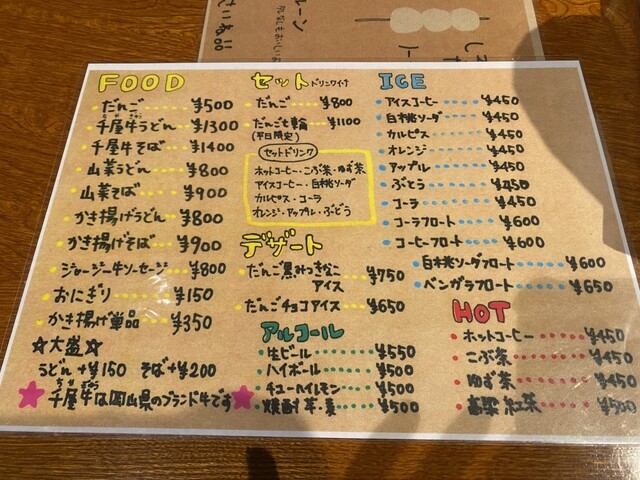 FOOD
だんご……¥500
千屋牛うどん…¥1300
千屋牛そば…¥1400
山菜うどん…¥800
山菜そば…¥900
かき揚げうどん…¥800
かき揚げそば…¥900
ジャージー牛ソーセージ…¥800
おにぎり…¥150
かき揚げ単品…¥350
☆大盛☆
うどん+¥150 そば+¥200
千屋牛は岡山県のブランド牛です
セット ドリンク付
だんご……¥800
だんご七輪…¥1100
(平日限定)
セットドリンク
ホットコーヒー・こぶ茶・ゆず茶
アイスコーヒー・白桃ソーダ
カルピス・コーラ
オレンジ・アップル・ぶどう
デザート
だんご黒みつきなこ
アイス…¥750
だんごチョコアイス…¥650
アルコール
生ビール……¥550
ハイボール……¥500
チューハイレモン…¥500
焼酎 芋・麦…¥500
ICE
アイスコーヒー…¥450
白桃ソーダ…¥450
カルピス…¥450
オレンジ…¥450
アップル…¥450
ぶどう…¥450
コーラ…¥450
コーラフロート…¥600
コーヒーフロート…¥600
白桃ソーダフロート…¥600
ベンガラフロート…¥650
HOT
ホットコーヒー…¥450
こぶ茶…¥450
ゆず茶…¥450
高梁紅茶…¥500